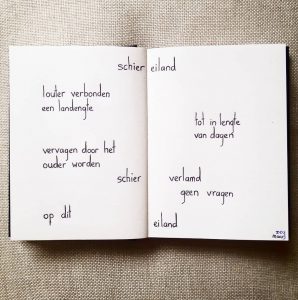 schier eiland
louter verbonden
een landengte
tot in lengte
van dagen
vervagen door het
ouder worden
schier verlamd
geen vragen
op dit eiland